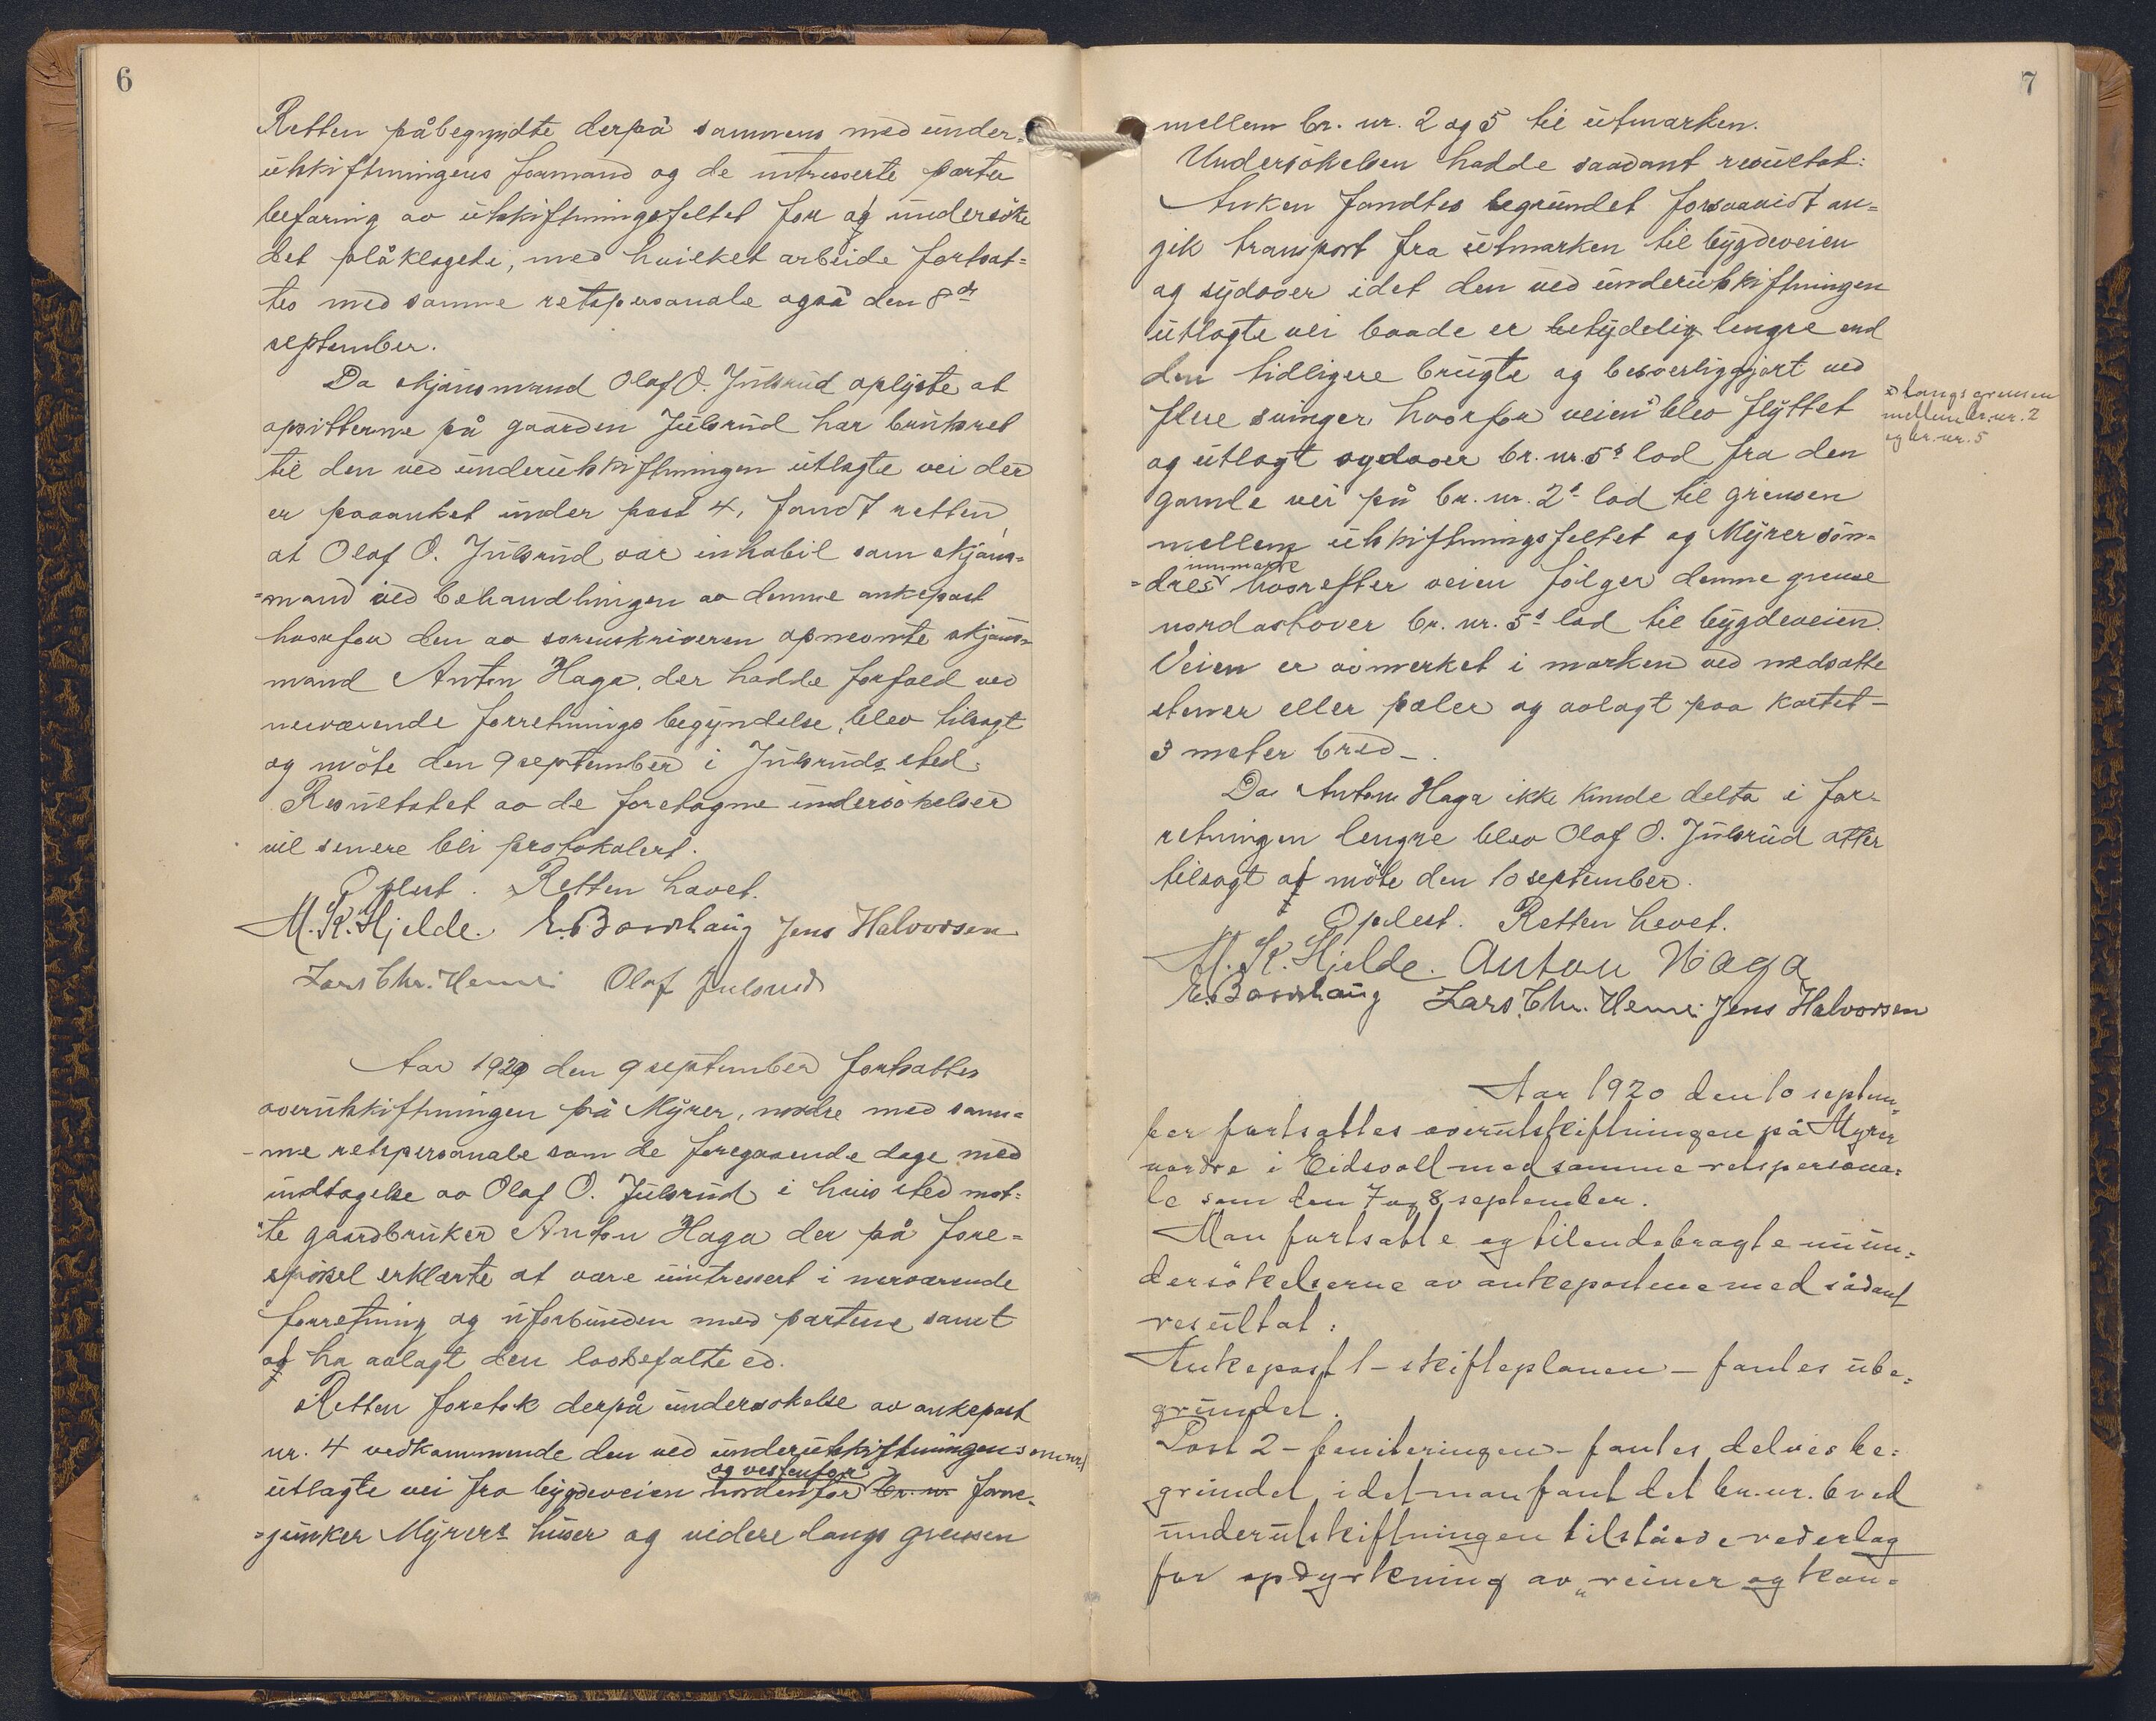 6
Retten påbegyndte derpå sammens med under-
utskiftningens formand og de intresserte parter
befaring av utskiftningsfeltet for og undersöke
det påklagede, med hvilket arbeide fortsat=
tes med samme retspersonale også den 8de
september.
Da skjönsmand Olaf O. Julsrud oplyste at
opsitterne på gaarden Julsrud har bruksret
til den ved underutskiftningen utlagte vei der
er paaanket under post 4, fandt retten
at Olaf O. Julsrud var inhabil som skjöns=
=mand ved behandlingen av denne ankepost
hvorfor den av sorenskriveren opnevnte skjöns=
mand Anton Haga, der hadde forfald ved
nærværende forretnings begyndelse, blev tilsagt
og möte den 9 september i Julsruds sted.
Resultatet av de foretagne undersökelser
vil senere bli protokolert.
Oplest. Retten hævet.
M. K. Hjelde. E. Bowhaug Jens Halvorsen
Lars Chr. Olaf Julsrud
Aar 1920 den 9 september fortsattes
overutskiftningen på Myrer, nordre med sam=
=me retspersonale som de foregaaende dage med
undtagelse av Olaf O. Julsrud i hvis sted möt=
=te gaardbruker Anton Haga der på fore=
spörsel erklærte at være uintressert i nærværende
forretning og uforbunden med partene samt
at ha avlagt den lovbefalte ed.
Retten foretok derpå undersökelse av ankepost
nr. 4 vedkommende den ved underutskiftningen
og vestenfor
utlagte vei fra bygdeveien nordenfor br. nr. fane-
=junker Myrers huser og videre langs grensen
7
mellem br. nr. 2 og 5 til utmarken.
Undersökelsen hadde saadant resultat:
Anken fandtes begrundet forsaavidt an=
gik transport fra utmarken til bygdeveien
og sydover idet den ved underutskiftningen
utlagte vei baade er betydelig lengre end
den tidligere brugte og besverliggjort ved
flere svinger hvorfor veien blev flyttet
langs grensen
mellem br. nr. 2
og br. nr. 5
og utlagt sydover br. nr. 5s lod fra den
gamle vei på br. nr. 2s lod til grensen
mellem utskiftningsfeltet og Myrer sön=
innmark
=dres hvorefter veien fölger denne grense
nordostover br. nr. 5s lod til bygdeveien.
Veien er avmerket i marken ved nedsatte
stener eller pæler og avlagt paa kartet -
3 meter bred -.
Da Anton Haga ikke kunde delta i for=
retningen lengre blev Olaf O. Julsrud atter
tilsagt at möte den 10 september.
Oplest. Retten hevet.
M. K. Hjelde. Anton Haga
E. Bowhaug Lars Chr. Jens Halvorsen
Aar 1920 den 10 septem=
ber fortsattes overutskiftningen på Myrer
nordre i Eidsvoll med samme retspersona=
le som den 7 og 8 september.
Man fortsatte og tilendebragte nu un=
dersökelserne av ankepostene med sådant
resultat:
Ankepost 1 - skifteplanen - fantes ube=
grundet.
Post 2 - boniteringen - fantes delvis be=
grundet idet man fant det br. nr. 6 ved
underutskiftningen tilståede vederlag
for opdyrkning av "reiner og kan=